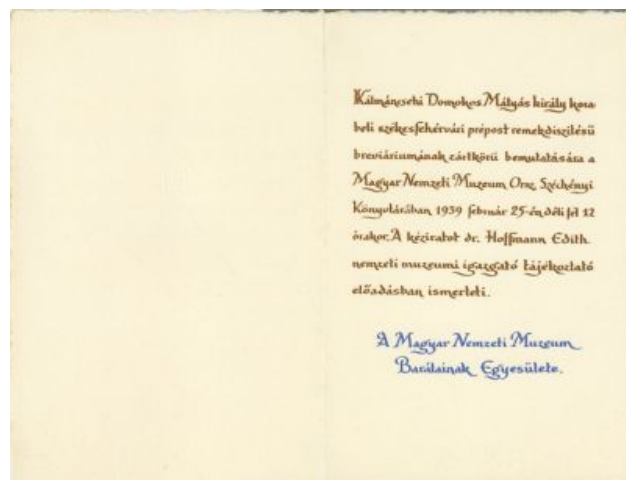 Kálmáncsehi Domokos Mátyás király kora
beli székesfehérvári prépost remekdiszitésü
breviáriumának zártkörü bemutatására a
Magyar Nemzeti Muzeum Orsz. Széchényi
Könyvtárában 1939 február 25-én déli fél 12
órakor. A kéziratot dr. Hoffmann Edith
nemzeti muzeumi igazgató tájékoztató
előadásban ismerteti.
A Magyar Nemzeti Muzeum
Barátainak Egyesülete.